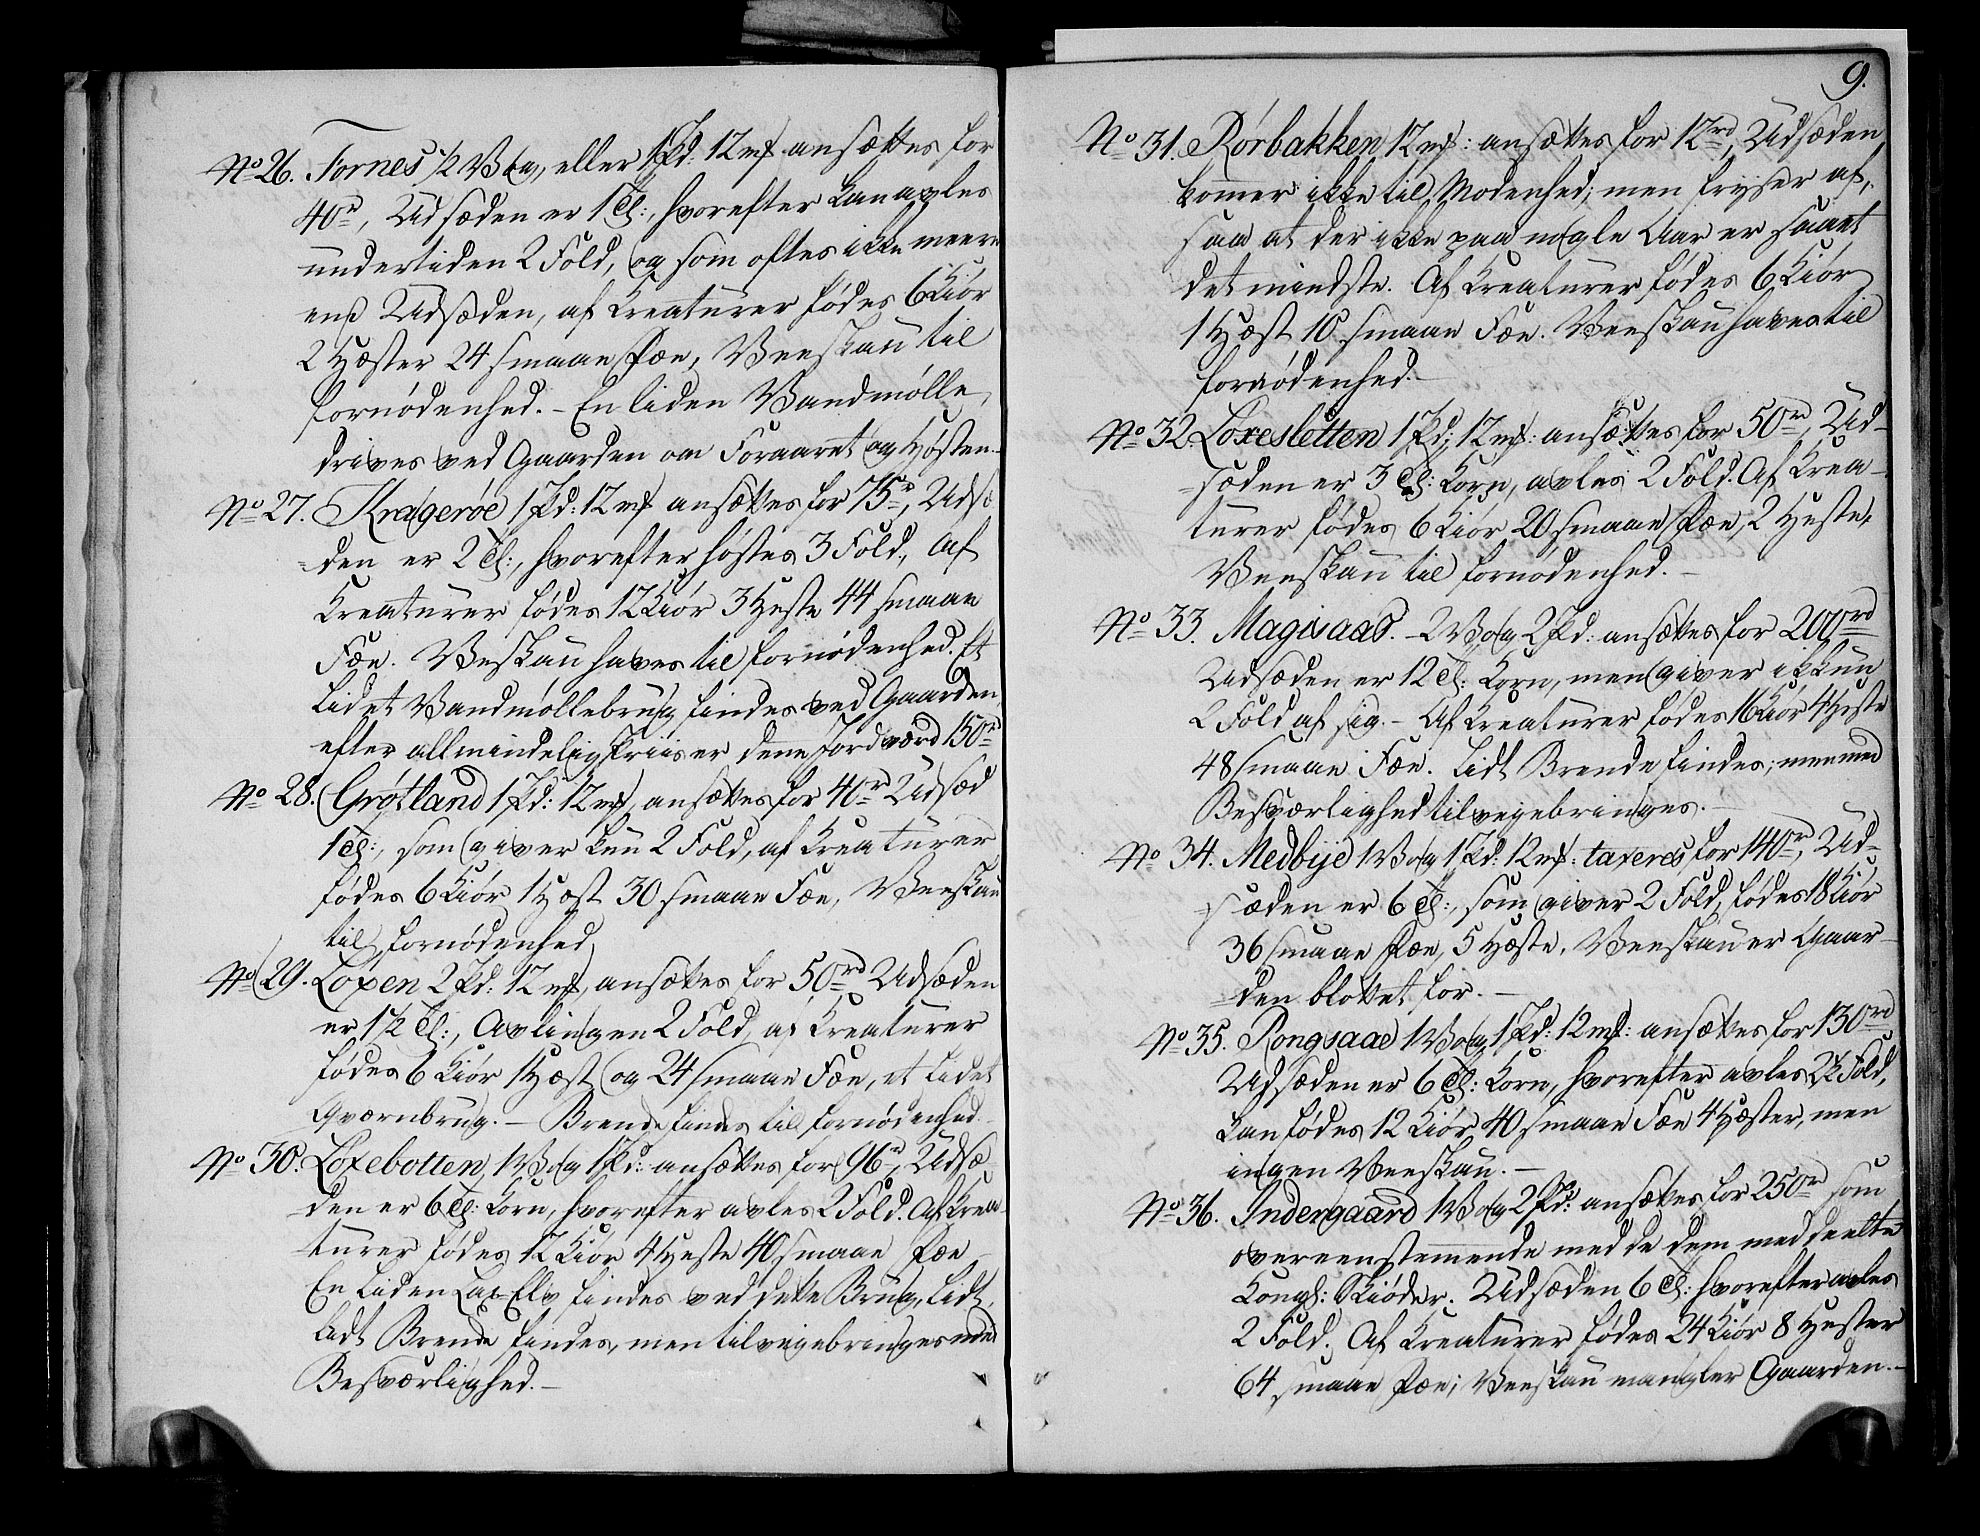 No 26. Fornes ½ Vog, eller 1 Pd: 12 mk ansættes for
40rd, Udsæden er 1 Td:, hvorefter kan avles
undertiden 2 Fold, og som oftes ikke meere
end Udsæden, af Kreaturer fødes 6 Kiør
2 Hæster 24 smaae Fæe, Veeskau til
fornødenhed. - En liden Vandmølle,
drives ved Gaarden om Foraaret og Høsten.
No 27. Kragerøe 1 Pd: 12 mk ansættes for 75rd, Udsæ
=den er 2 Td:, hvorefter høstes 3 Fold, Af
Kreaturer fødes 12 Kiør 3 Heste 44 smaae
Fæe. Veskau haves til fornødenhed. Et
lidet Vandmøllebrug findes ved Gaarden,
efter allmindelig Priis er denne Jord værd 150rd
No 28. Grøtland 1 Pd: 12 mk, ansættes for 40rd Udsæd
1 Td:, som giver kun 2 Fold, af Kreaturer
fødes 6 Kiør 1 Hæst 30 smaae Fæe, Veeskau
til fornødenhed
No 29. Loxen 2 Pd: 12 mk, ansættes for 50rd Udsæden
er 1½ Td:, Avlingen 2 Fold, af Kreaturer
fødes 6 Kiør 1 Hæst og 24 smaae Fæe, et lidet
Qværnbrug. - Brende findes til fornødenhed.
No 30. Loxebotten 1 Vog 1 Pd: ansættes for 96rd, Udsæ
=den er 6 Td: Korn, hvorefter avles 2 Fold. Af Krea
=turer fødes 12 Kiør 4 Heste 40 smaae Fæe
En liden Lax-Elv findes ved dette Brug, lidt,
lidt Brende findes, men tilveiebringes med
Besværlighed. -
9.
No 31. Rørbakken 12 mk: ansættes for 12rd, Udsæden
kommer ikke til Modenhed; men fryser af,
saa at der ikke paa nogle Aar er saaet
det mindste. Af Kreaturer fødes 6 Kiør
1 Hæst 10 smaae Fæe. Veeskau haves til
fornødenhed. -
No 32. Loxesletten 1 Pd: 12 mk: ansættes for 50rd, Ud-
=sæden er 3 Td: Korn, avles 2 Fold. Af Krea-
turer fødes 6 Kiør 20 smaae Fæe, 2 Heste,
Veeskau til fornødenhed. -
No 33. Magisaas. - 2 Vog 2 Pd: ansættes for 200rd
Udsæden er 12 Td: Korn, men giver ikkun
2 Fold af sig. - Af Kreaturer fødes 16 Kiør 4 Heste
48 smaae Fæe. Lidt Brende findes; men med
Besværlighed tilveyebringes. -
No 34. Medbye 1 Vog 1 Pd: 12 mk: taxeres for 140rd, Ud-
=sæden er 6 Td:, som giver 2 Fold, fødes 18 Kiør
36 smaae Fæe, 5 Hæste, Veeskau er Gaar-
=den blottet for. -
No 35. Rongsaae 1 Vog 1 Pd: 12 mk: ansættes for 130rd
Udsæden er 6 Td: Korn, hvorefter avles 2½ Fold,
kan fødes 12 Kiør 40 smaae Fæe 4 Hæster, men
ingen Veeskau. -
No 36. Indergaard 1 Vog 2 Pd: ansættes for 250rd som
overeenstemmende med de dem meddeelte
Kongl: Skiøder. Udsæden 6 Td: hvorefter avles
2 Fold. Af Kreaturer fødes 24 Kiør 8 Hester
64 smaae Fæe; Veeskau mangler Gaarden. -